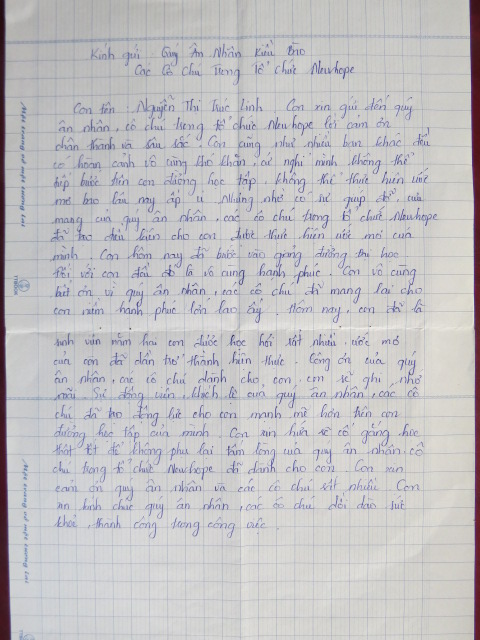 Kính gửi : Quý Ân Nhân Kiều Bào
Các Cô Chú Trong Tổ Chức Newhope
Con tên : Nguyễn Thị Trúc Linh. Con xin gửi đến quý
ân nhân, cô chú trong tổ chức Newhope lời cảm ơn
chân thành và sâu sắc. Con cũng như nhiều bạn khác đều
có hoàn cảnh vô cùng khó khăn, cứ nghĩ mình không thể
tiếp bước trên con đường học tập, không thể thực hiện ước
mơ bao lâu nay ấp ủ. Nhưng nhờ có sự giúp đỡ, cưu
mang của quý ân nhân, các cô chú trong tổ chức Newhope
đã tạo điều kiện cho con được thực hiện ước mơ của
mình. Con hôm nay đã bước vào giảng đường đại học
Đối với con đầu đó là vô cùng hạnh phúc. Con vô cùng
biết ơn vì quý ân nhân, các cô chú đã mang lại cho
con niềm hạnh phúc lớn lao ấy. Hôm nay, con đã là
sinh viên năm hai con được học hỏi rất nhiều. ước mơ
của con đã dần trở thành hiện thực. Công ơn của quý
ân nhân, các cô chú dành cho con, con sẽ ghi nhớ
mãi. Sự động viên, khích lệ của quý ân nhân, các cô
chú đã tạo động lực cho con mạnh mẽ hơn trên con
đường học tập của mình. Con xin hứa sẽ cố gắng học
thật tốt để không phụ lại tấm lòng của quý ân nhân, cô
chú trong tổ chức Newhope đã dành cho con. Con xin
cảm ơn quý ân nhân và các cô chú rất nhiều. Con
xin kính chúc quý ân nhân, các cô chú dồi dào sức
khoẻ, thành công trong công việc.